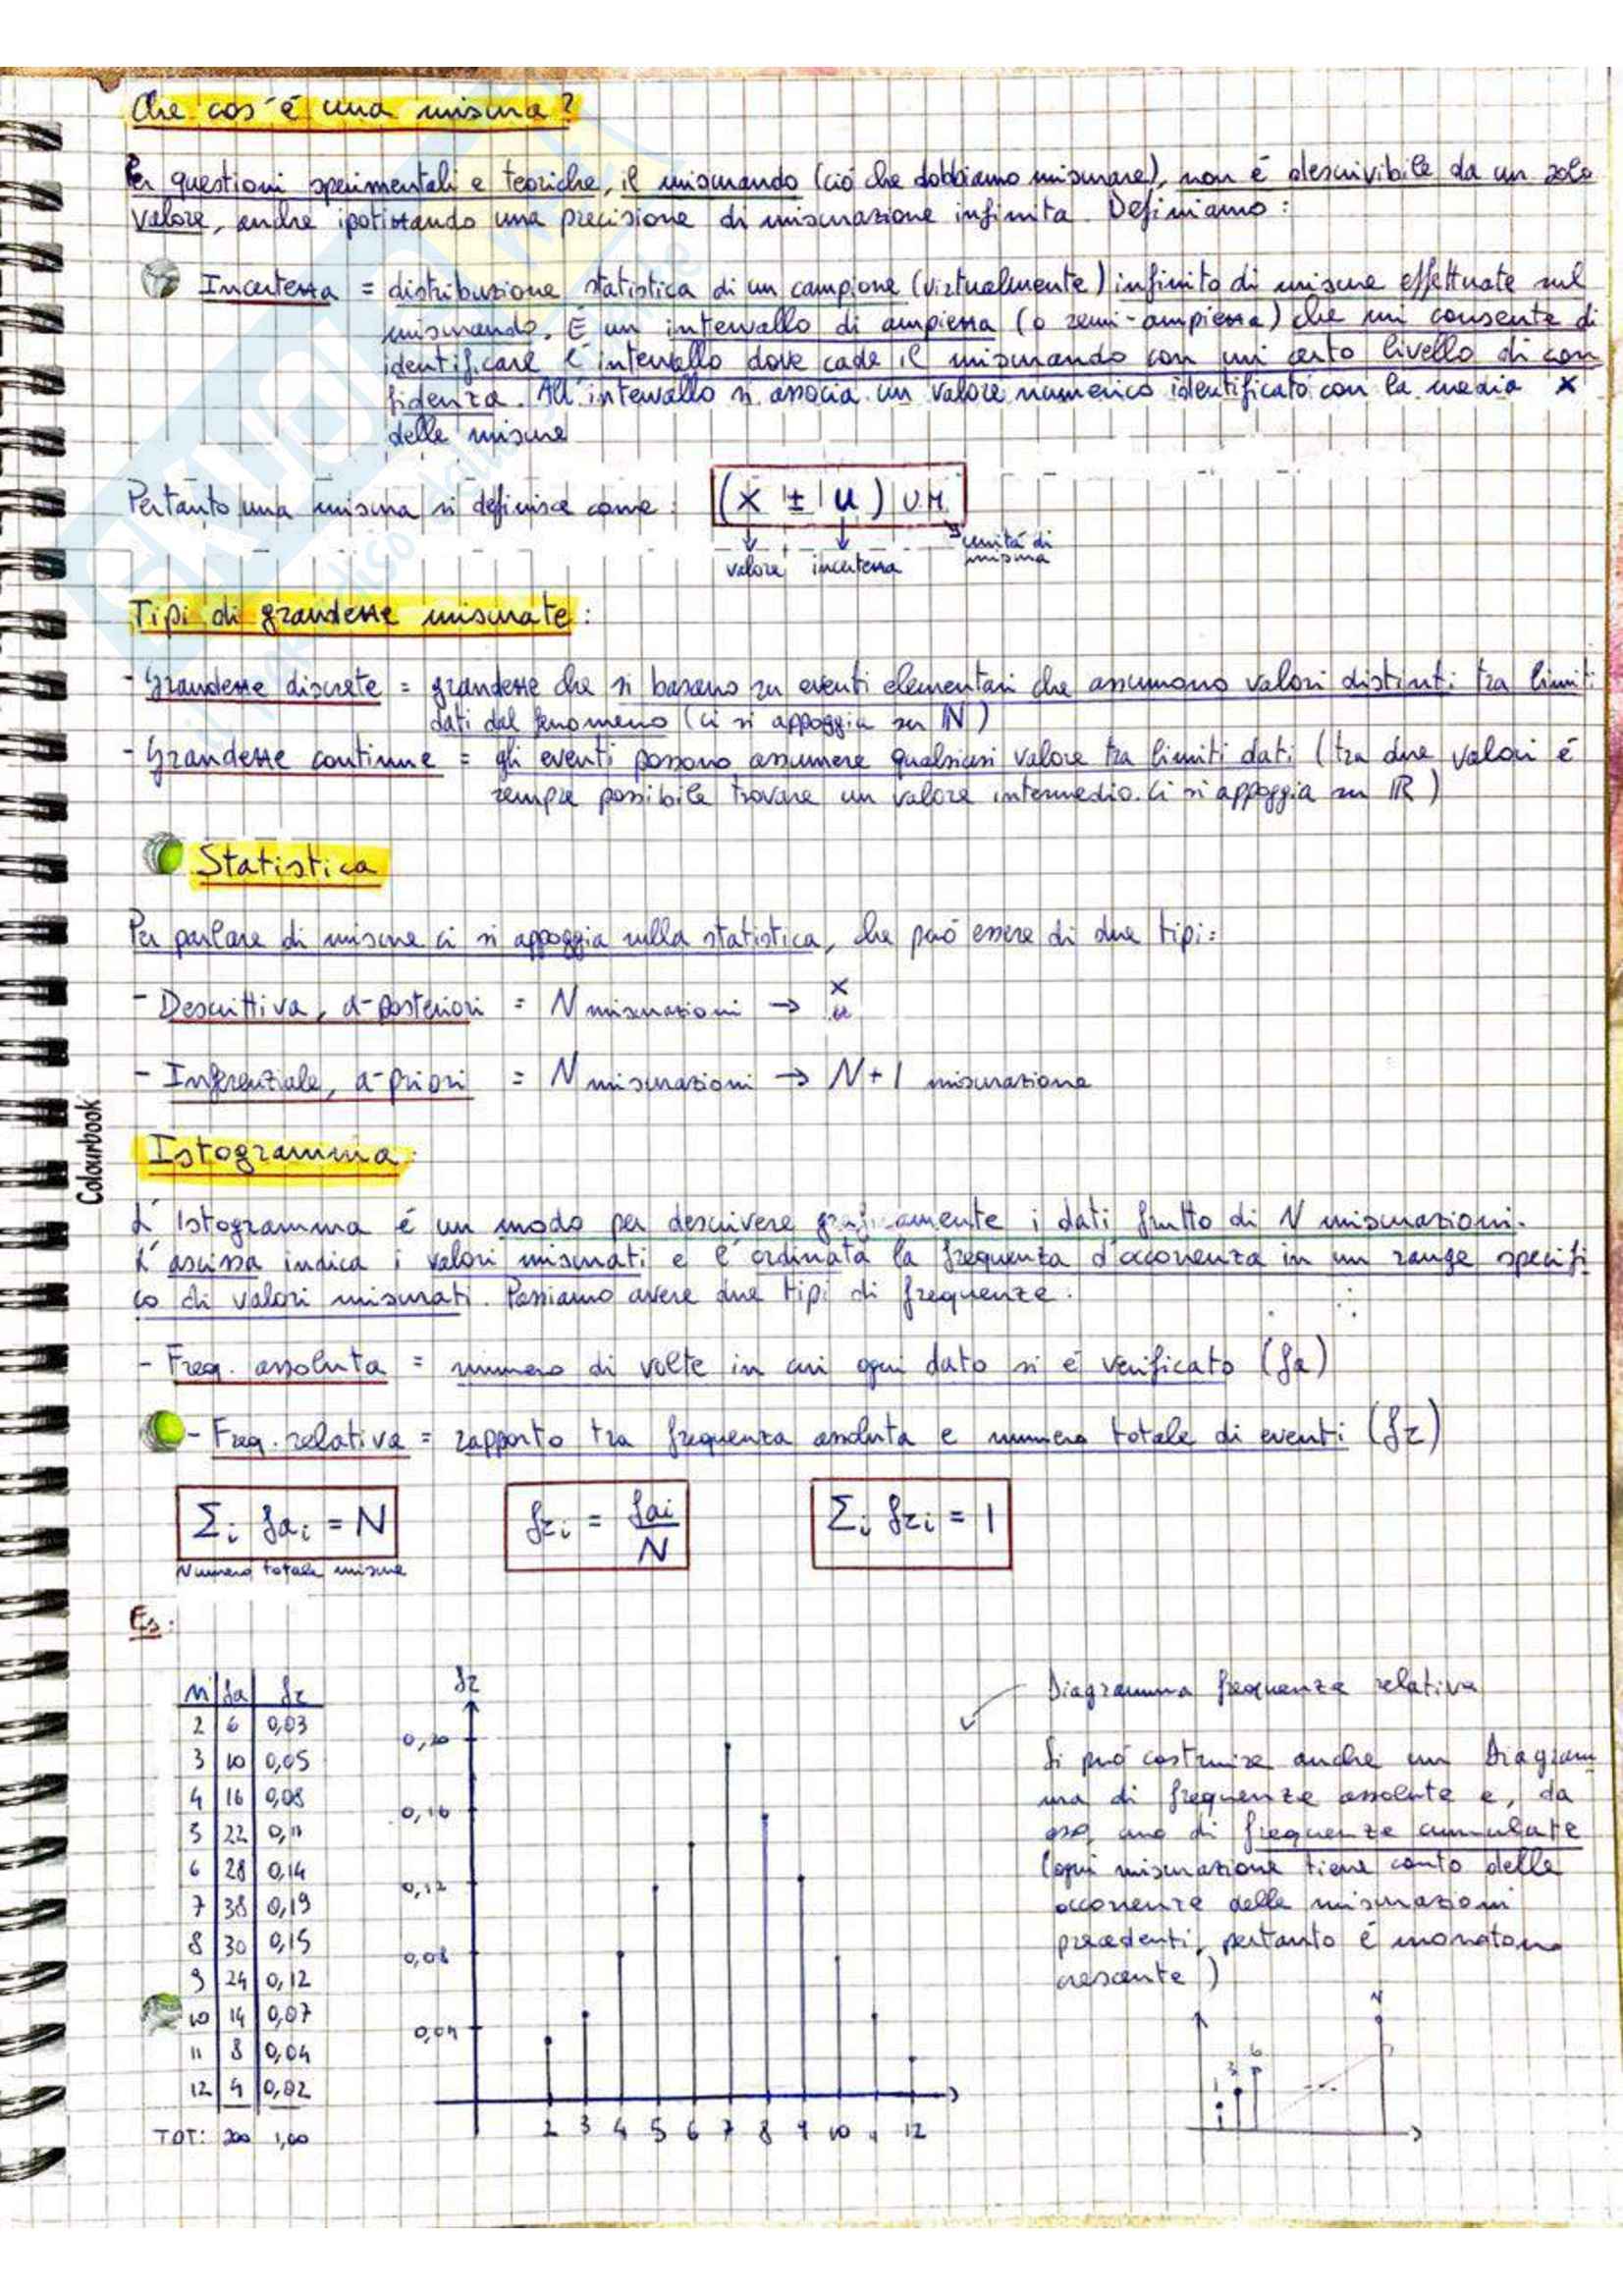 Che cos'é una misura?
Per questioni sperimentali e teoriche, il misurando (ció che dobbiamo misurare), non é descrivibile da un solo
valore, anche ipotizzando una precisione di misurazione infinita. Definiamo:
Incertezza = distribuzione statistica di un campione (virtualmente) infinito di misure effettuate sul
misurando. É un intervallo di ampiezza (o semi-ampiezza) che mi consente di
identificare l'intervallo dove cade il misurando con un certo livello di con
fidenza. All'intervallo si associa un valore numerico identificato con la media x
delle misure
Pertanto una misura si definisce come: (x ± u) UM
valore incertezza unitá di misura
Tipi di grandezze misurate:
- Grandezze discrete = grandezze che si basano su eventi elementari che assumono valori distinti tra limiti
dati dal fenomeno (ci si appoggia su ℕ)
- Grandezze continue = gli eventi possono assumere qualsiasi valore tra limiti dati (tra due valori é
sempre possibile trovare un valore intermedio. Ci si appoggia su ℝ)
Statistica
Per parlare di misure ci si appoggia sulla statistica, che puó essere di due tipi:
- Descrittiva, a-posteriori = N misurazioni → x u
- Inferenziale, a-priori = N misurazioni → N+1 misurazione
Colourbook
Istogramma:
L'Istogramma é un modo per descrivere graficamente i dati frutto di N misurazioni.
L'ascissa indica i valori misurati e l'ordinata la frequenza d'occorrenza in un range specifi
co di valori misurati. Possiamo avere due tipi di frequenze:
- Freq. assoluta = numero di volte in cui ogni dato si é verificato (fa)
- Freq. relativa = rapporto tra frequenza assoluta e numero totale di eventi (fr)
Σi fai = N
fri = fai/N
Σi fri = 1
Numero totale misure
Es:
n fa fr
2 6 0,03
3 10 0,05
4 16 0,08
5 22 0,11
6 28 0,14
7 38 0,19
8 30 0,15
9 24 0,12
10 14 0,07
11 8 0,04
12 4 0,02
TOT: 200 1,00
fr
0,20
0,16
0,12
0,08
0,04
2 3 4 5 6 7 8 9 10 11 12
Diagramma frequenza relativa
Si puó costruire anche un Diagram
ma di frequenze assolute e, da
esso, uno di frequenze cumulate
(ogni misurazione tiene conto delle
occorrenze delle misurazioni
precedenti, pertanto é monotona
crescente)
1 3 6
N